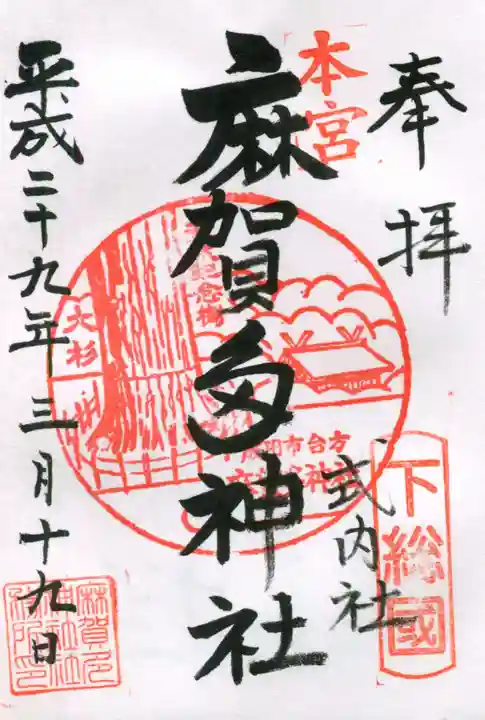 奉拝
下総國
式内社
本宮
麻賀多神社
記念樹
大杉
市台方
平成二十九年三月十九日
麻賀多
神社社
務所印